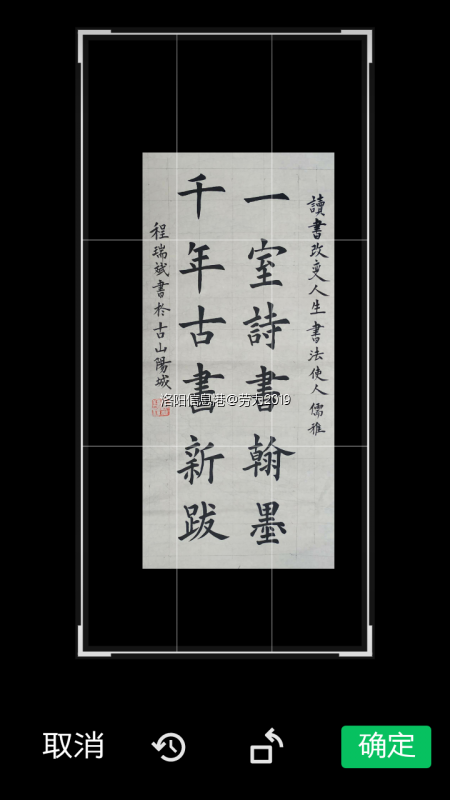 讀書改变人生 書法使人儒雅
一室詩書翰墨
千年古書新跋
程瑞斌書於古山陽城
洛阳信息港@劳力2019
取消
确定